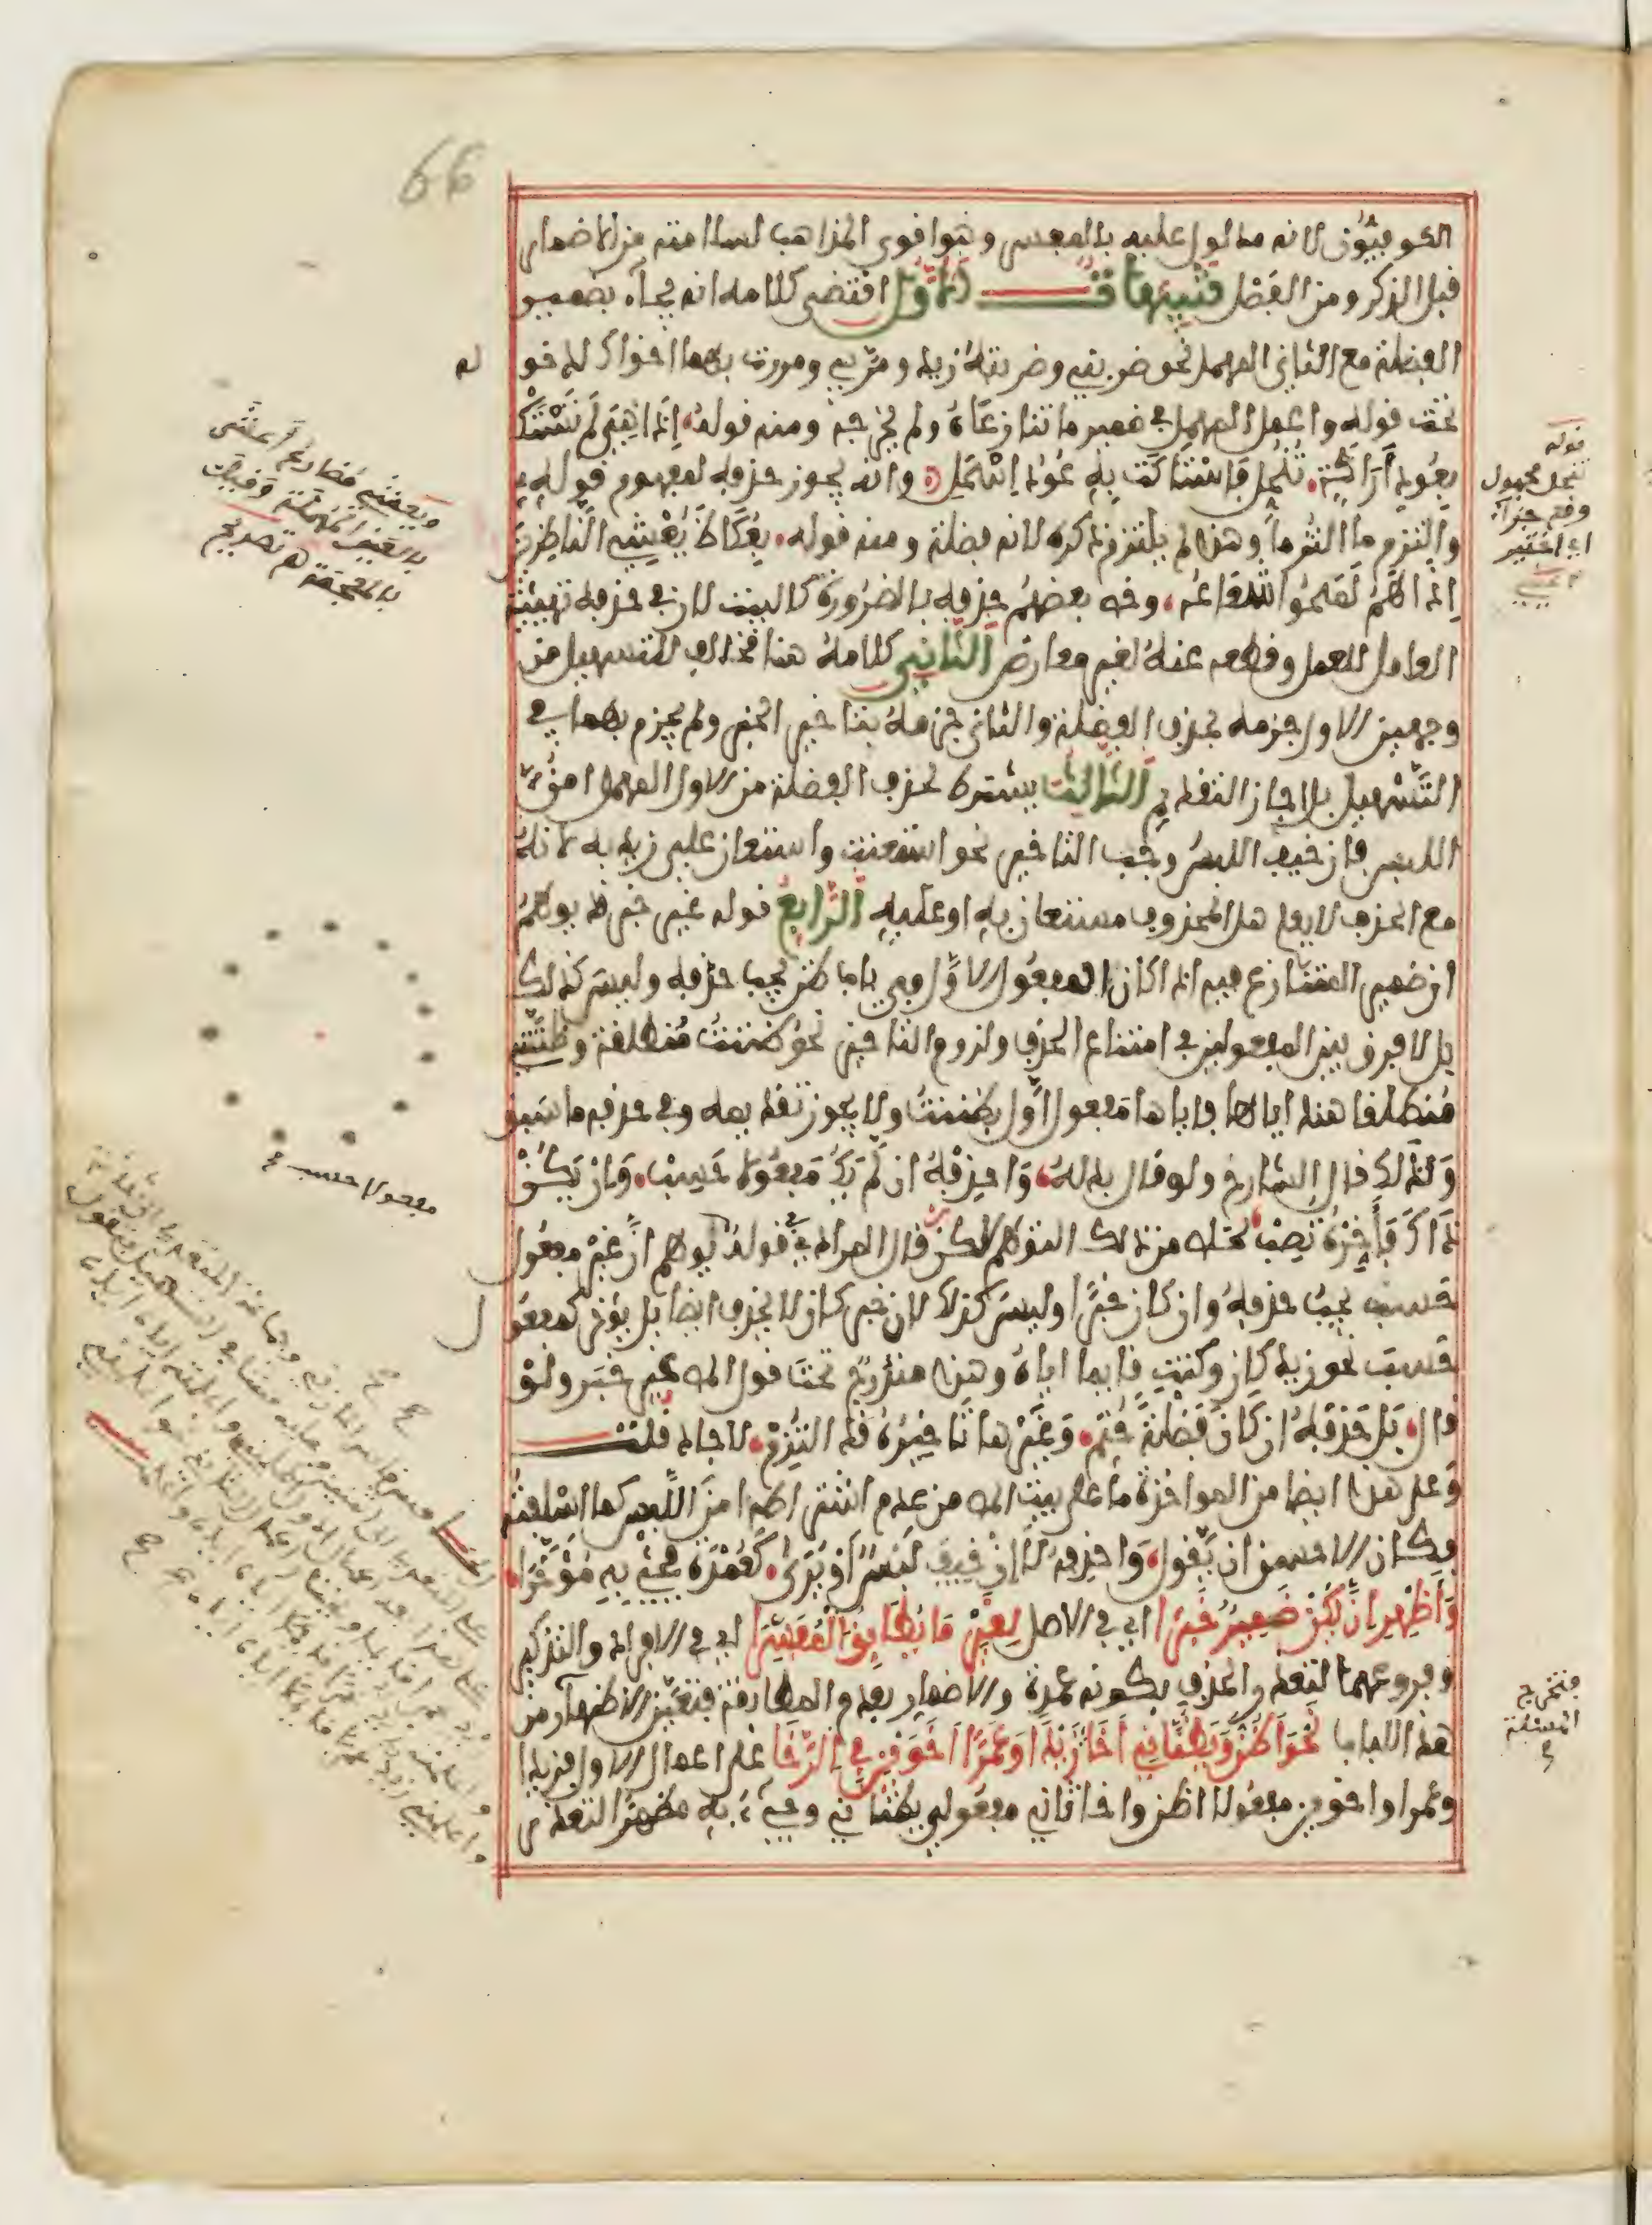 66
الكوفيون لانه مدلول عليه بالمفسر وهو اقوى المذاهب لسلامته من الاضمار
قبل الذكر ومن الفصل تنبيهات الاول اقتضى كلامه انه يجاء بضمير
الفضلة مع الثاني المهمل نحو ضربني وضربته زيد ومر بي ومررت بهما اخواك لدخو
له
تحت قوله واعمل المهمل في ضمير ما تنازعاه ولم يخرجه ومنه قوله اذا هي لم تستك
بعود اراكة تنخل فاستاكت به عود اسحل وانه يجوز حذفه لمفهوم قوله
والتزم ما التزما وهذا لم يلتزم ذكره لانه فضلة ومنه قوله بعكاظ يعشي الناظرين
اذا هم لمحوا شعاعه وخص بعضهم حذفه بالضرورة كالبيت لان في حذفه تهيئة
العامل للعمل وقطعه عنه لغير معارض الثاني كلامه هنا مخالف للتسهيل من
وجهين الاول جزمه بحذف الفضلة والثاني جزمه بتاخير الخبر ولم يجزم بهما في
التسهيل بل اجاز التقديم الثالث يشترط لحذف الفضلة من الاول المهمل امن
اللبس فان خيف اللبس وجب التاخير نحو استعنت واستعان علي زيد به لانه
مع الحذف لا يعلم هل المحذوف مستعان به او عليه الرابع قوله غير خبر يوهم
ان ضمير المتنازع فيه اذا كان المفعول الاول في باب ظن يجب حذفه وليس كذلك
بل لا فرق بين المفعولين في امتناع الحذف ولزوم التاخير نحو ظننت منطلقة وظنتني
منطلقا هند اياها فاياها مفعول اول بظننت ولا يجوز تقديمه وفي حذفه ما سبق
ولذلك قال الشارح ولو قال بدله واحذفه ان لم يك مفعول حسب وان يكن
ذاك فاخره تصب لخلص من ذلك التوهم لاكن قال المرادي في قوله يوهم ان غير مفعول
حسب يجب حذفه وان كان خبرا وليس كذلك لان خبر كان لا يحذف ايضا بل يؤخر كمفعو
ل
حسب نحو زيد كان وكنت قايما اياه وهذا مندرج تحت قول المص غير خبر ولو
قال بل حذفه ان كان فضلة حتم وغيرها تاخيره قد التزم لاجاد قلت
وعلى هذا ايضا من المؤاخذة ما على بيت المص من عدم اشتراط امن اللبس كما اسلفته
فكان الاحسن ان يقول واحذفه لا ان خيف لبس او يرى كعمدة فجئ به مؤخرا
واظهر ان يكن ضمير خبرا اي في الاصل لغير ما يطابق المفسرا اي في الافراد والتذكير
وفروعهما لتعذر الحذف بكونه عمدة والاضمار بعدم المطابقة فتعين الاظهار من
هذه اللباب نحو اظن ويظناني اخا زيدا وعمرا اخوين في الرخا على اعمال الاول فزيدا
وعمرا واخوين مفعولا اظن واخا ثاني مفعولي يظناني وجيء به مظهرا لتعذر
ويعشي مضارع اعشى
بالعين المهملة وقيل
بالمعجمة هـ تصريح
قوله
تنخل مجهول
وقع جزاء
اي اختير
عيني
مفعولا حسب
فتخرج
المسئلة